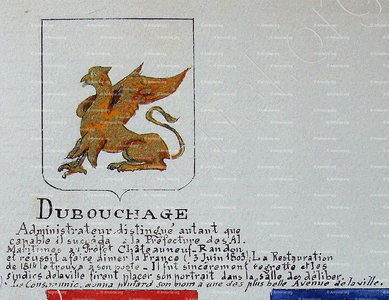 DUBOUCHAGE
Administrateur distingué autant que
capable il succéda à la Préfecture des Al.
Maritimes au Préfet Châteauneuf Randon,
et réussit afaire aimer la France (3 Juin 1803). La Restauration
de 1814 le trouva à son poste. Il fut sincèrement regretté et les
sindics de la ville firent placer son portrait dans la salle des déliber.
donna plutard son nom a une des plus belle Avenue de la ville.